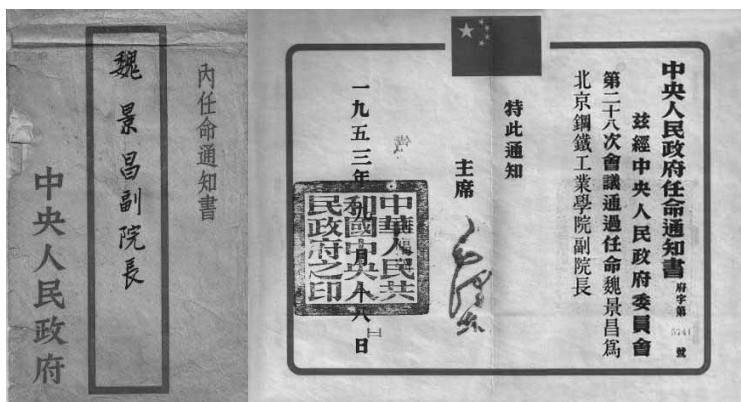 內任命通知書
魏景昌副院長
中央人民政府
中央人民政府任命通知書
府字第5741號
茲經中央人民政府委員會
第二十八次會議通過任命魏景昌爲
北京鋼鐵工業學院副院長
特此通知
主席
毛澤東
一九五三年九月十八日
中華人民共
和國中央人
民政府之印